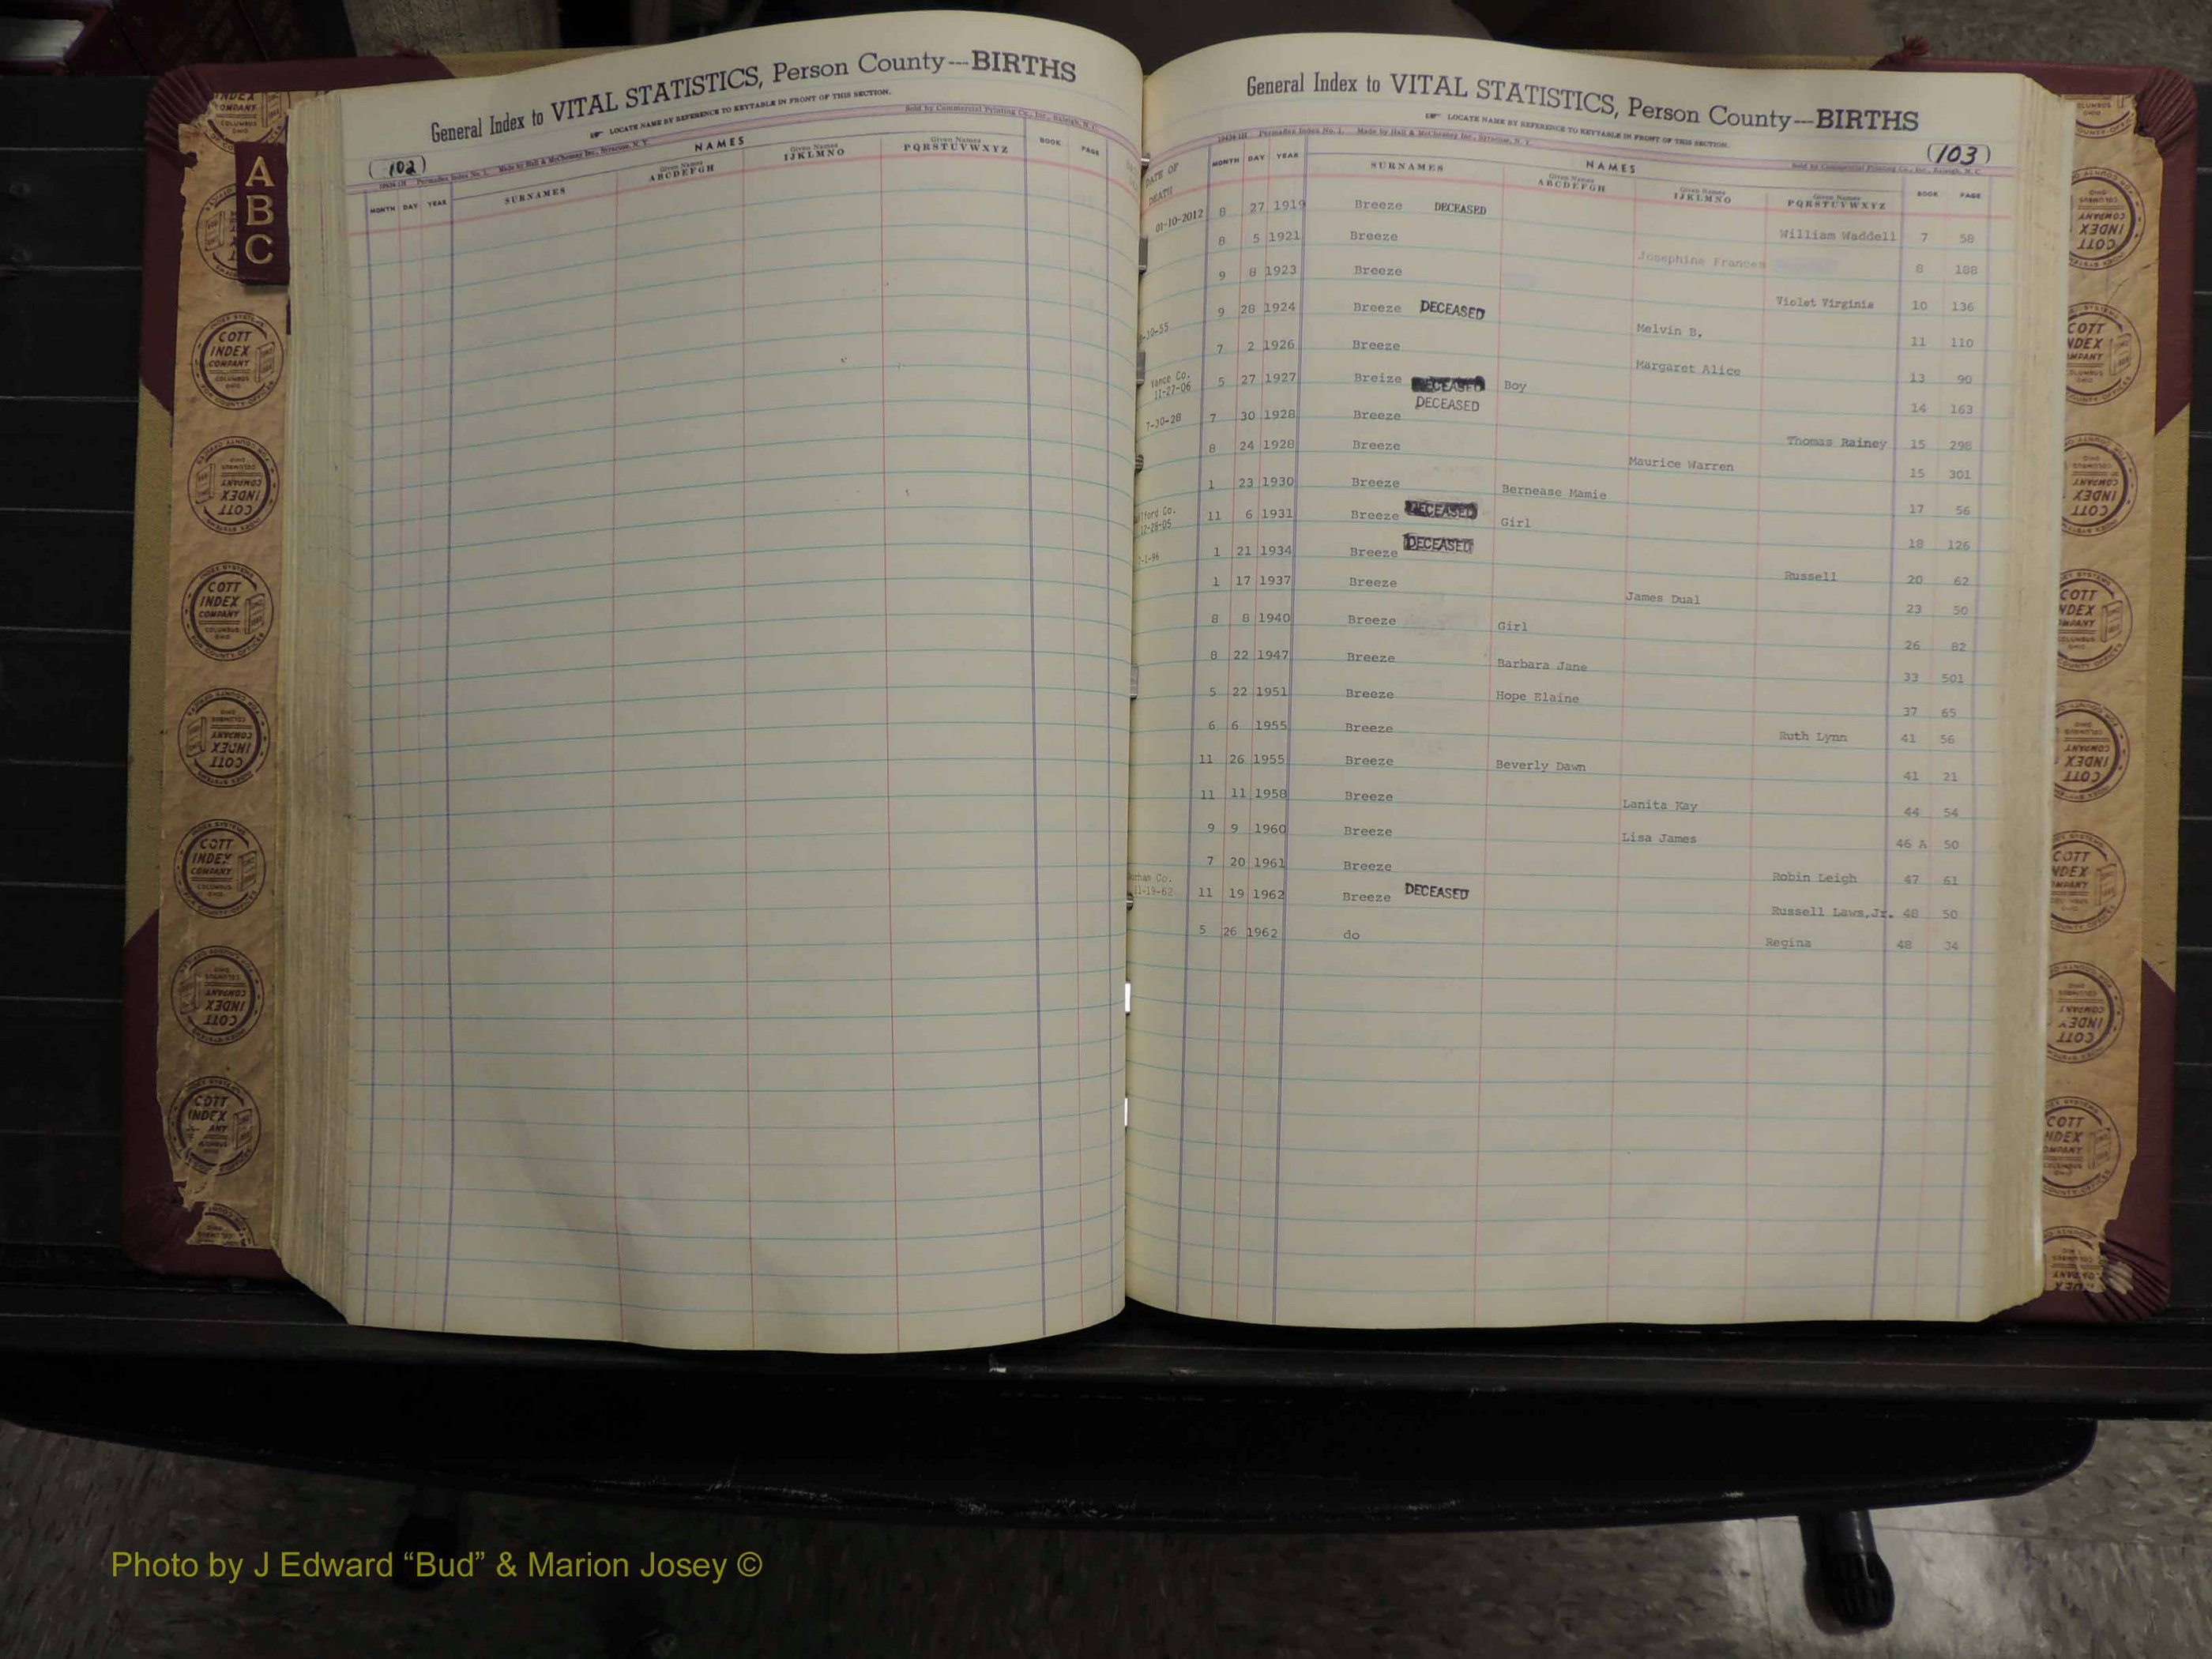 General Index to VITAL STATISTICS, Person County---BIRTHS
LOCATE NAME BY REFERENCE TO KEYTABLE IN FRONT OF THIS SECTION.
Made by Hall & McChesney Inc., Syracuse, N. Y. Sold by Commercial Printing Co., Inc., Raleigh, N. C.
(102)
NAMES
MONTH DAY YEAR SURNAMES Given Names ABCDEFGH Given Names IJKLMNO Given Names PQRSTUVWXYZ BOOK PAGE
A
B
C
General Index to VITAL STATISTICS, Person County---BIRTHS
LOCATE NAME BY REFERENCE TO KEYTABLE IN FRONT OF THIS SECTION.
Made by Hall & McChesney Inc., Syracuse, N. Y. Sold by Commercial Printing Co., Inc., Raleigh, N. C.
(103)
NAMES
DATE OF DEATH MONTH DAY YEAR SURNAMES Given Names ABCDEFGH Given Names IJKLMNO Given Names PQRSTUVWXYZ BOOK PAGE
01-10-2012 8 27 1919 Breeze DECEASED William Waddell 7 58
8 5 1921 Breeze Josephine Frances 8 188
9 8 1923 Breeze Violet Virginia 10 136
9 28 1924 Breeze DECEASED Melvin B. 11 110
7 2 1926 Breeze Margaret Alice 13 90
Vance Co. 11-27-06 5 27 1927 Breize DECEASED Boy 14 163
7-30-28 7 30 1928 Breeze DECEASED Thomas Rainey 15 298
8 24 1928 Breeze Maurice Warren 15 301
1 23 1930 Breeze Bernease Mamie 17 56
11 6 1931 Breeze DECEASED Girl 18 126
1 21 1934 Breeze DECEASED Russell 20 62
1 17 1937 Breeze James Dual 23 50
8 8 1940 Breeze Girl 26 82
8 22 1947 Breeze Barbara Jane 33 501
5 22 1951 Breeze Hope Elaine 37 65
6 6 1955 Breeze Ruth Lynn 41 56
11 26 1955 Breeze Beverly Dawn 41 21
11 11 1958 Breeze Lanita Kay 44 54
9 9 1960 Breeze Lisa James 46 A 50
7 20 1961 Breeze Robin Leigh 47 61
11-19-62 11 19 1962 Breeze DECEASED Russell Laws,Jr. 48 50
5 26 1962 do Regina 48 34
COTT INDEX COMPANY COLUMBUS OHIO
INDEX SYSTEMS FOR COUNTY OFFICES
Photo by J Edward “Bud” & Marion Josey ©